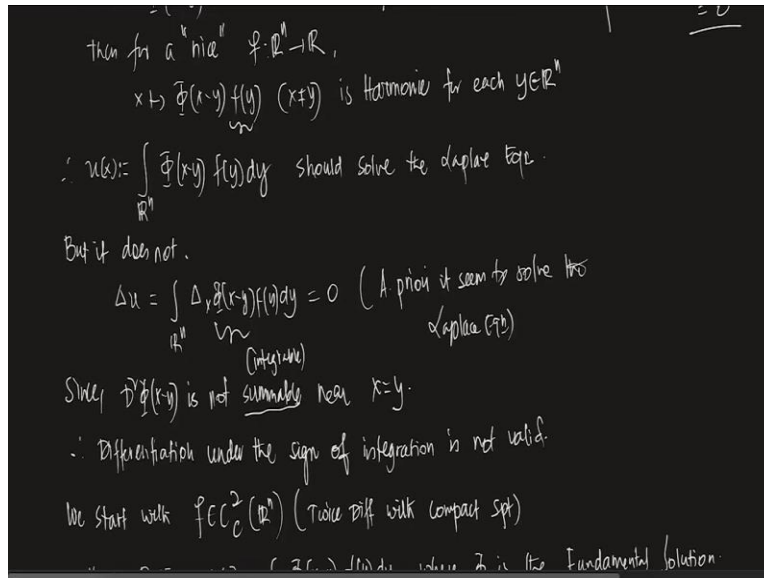 = 0
then for a "nice" f: ℝⁿ → ℝ,
x ↦ Φ(x-y) f(y) (x≠y) is Harmonic for each y∈ℝⁿ
∴ u(x):= ∫_{ℝⁿ} Φ(x-y) f(y) dy should solve the Laplace Eqn.
But it does not.
Δu = ∫_{ℝⁿ} Δₓ Φ(x-y) f(y) dy = 0 (A priori it seem to solve the
Laplace Eqn)
(integrable)
Since, D²Φ(x-y) is not summable near x=y.
∴ Differentiation under the sign of integration is not valid.
We start with f∈C²_c(ℝⁿ) (Twice Diff with compact spt)
Φ is the Fundamental Solution.